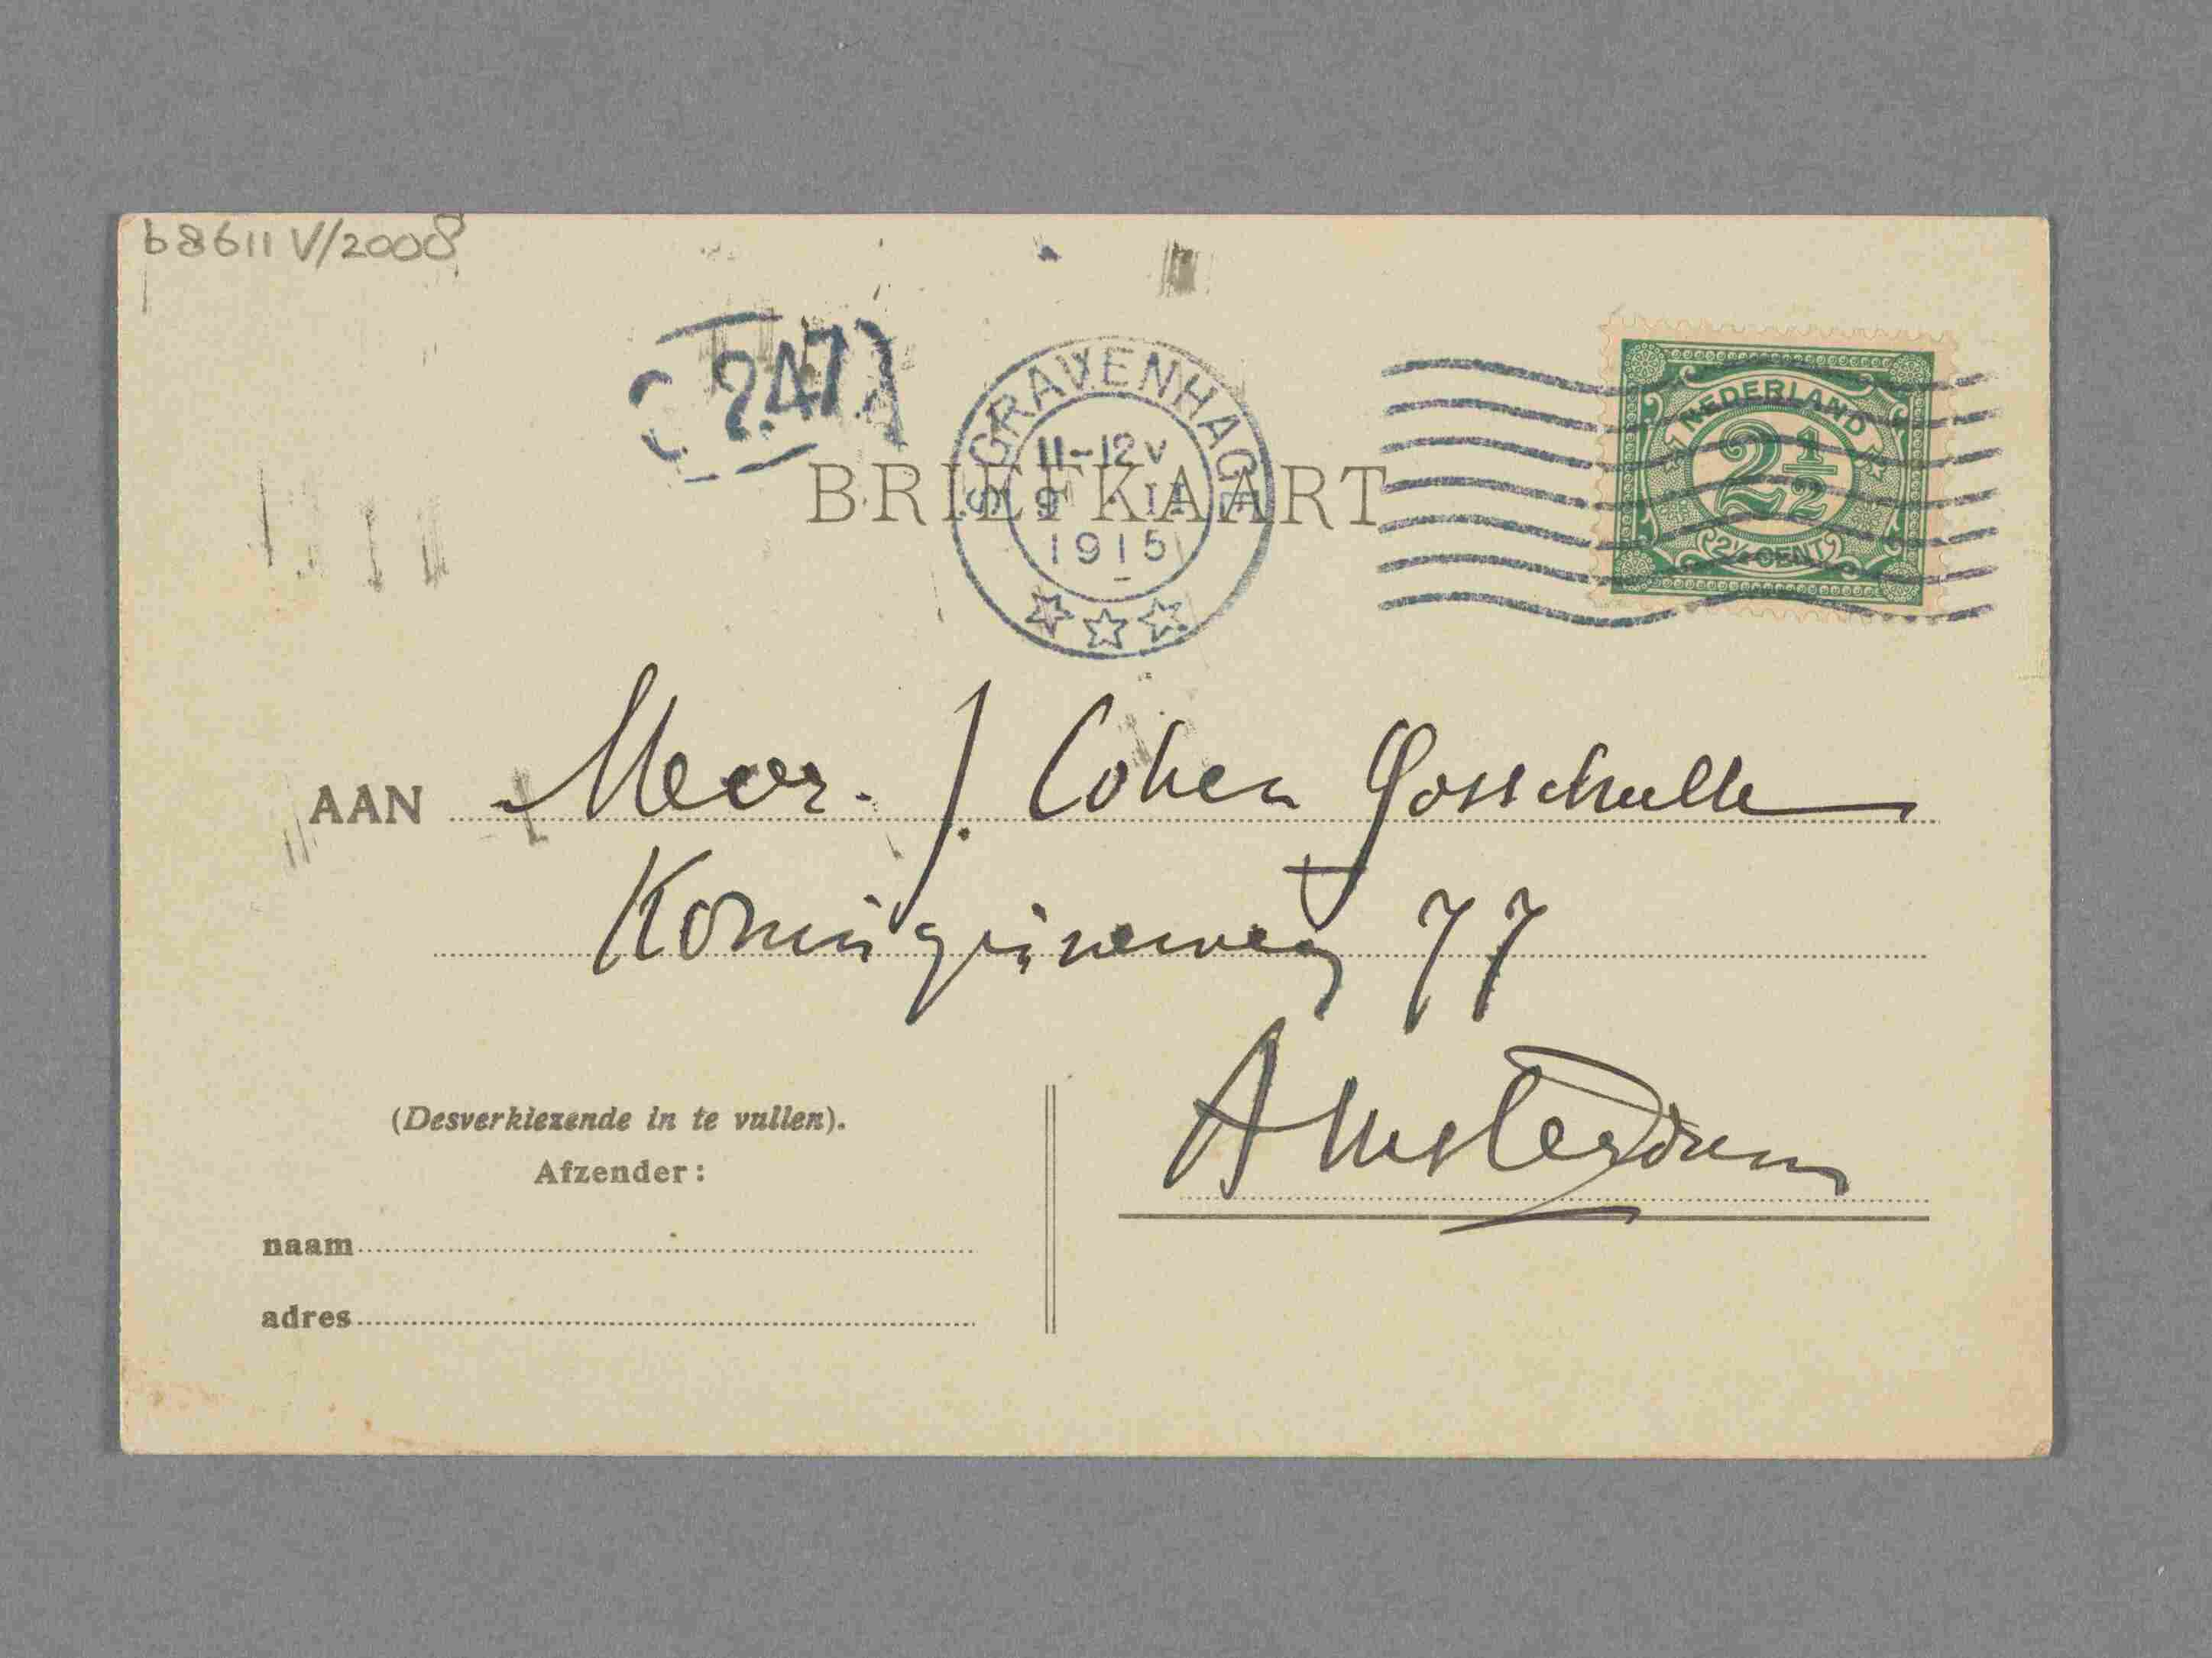 b8611 V/2008
247
'S GRAVENHAGE
11-12 V
1915
BRIEFKAART
NEDERLAND
2 1/2
2 1/2 CENT
AAN Mevr. J. Cohen Gosschalk
Koninginneweg 77
Amsterdam
(Desverkiezende in te vullen).
Afzender:
naam
adres